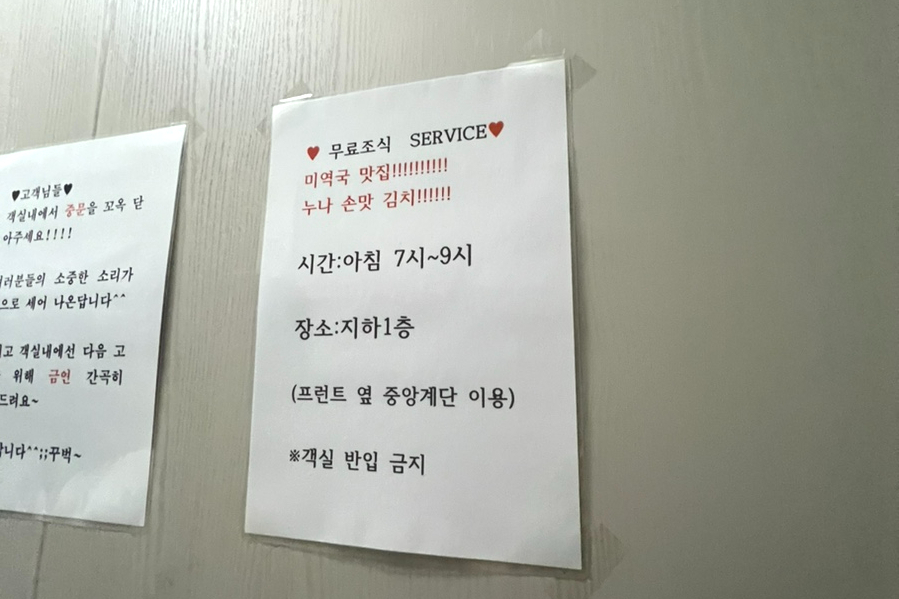 ♥고객님들♥
객실내에서 중문을 꼬옥 닫
아주세요!!!!
소중한 소리가
으로 세어 나온답니다^^
객실내에선 다음 고
위해 금연 간곡히
드려요~
니다^^;;꾸벅~
♥ 무료조식 SERVICE♥
미역국 맛집!!!!!!!!!!
누나 손맛 김치!!!!!!
시간:아침 7시~9시
장소:지하1층
(프런트 옆 중앙계단 이용)
※객실 반입 금지